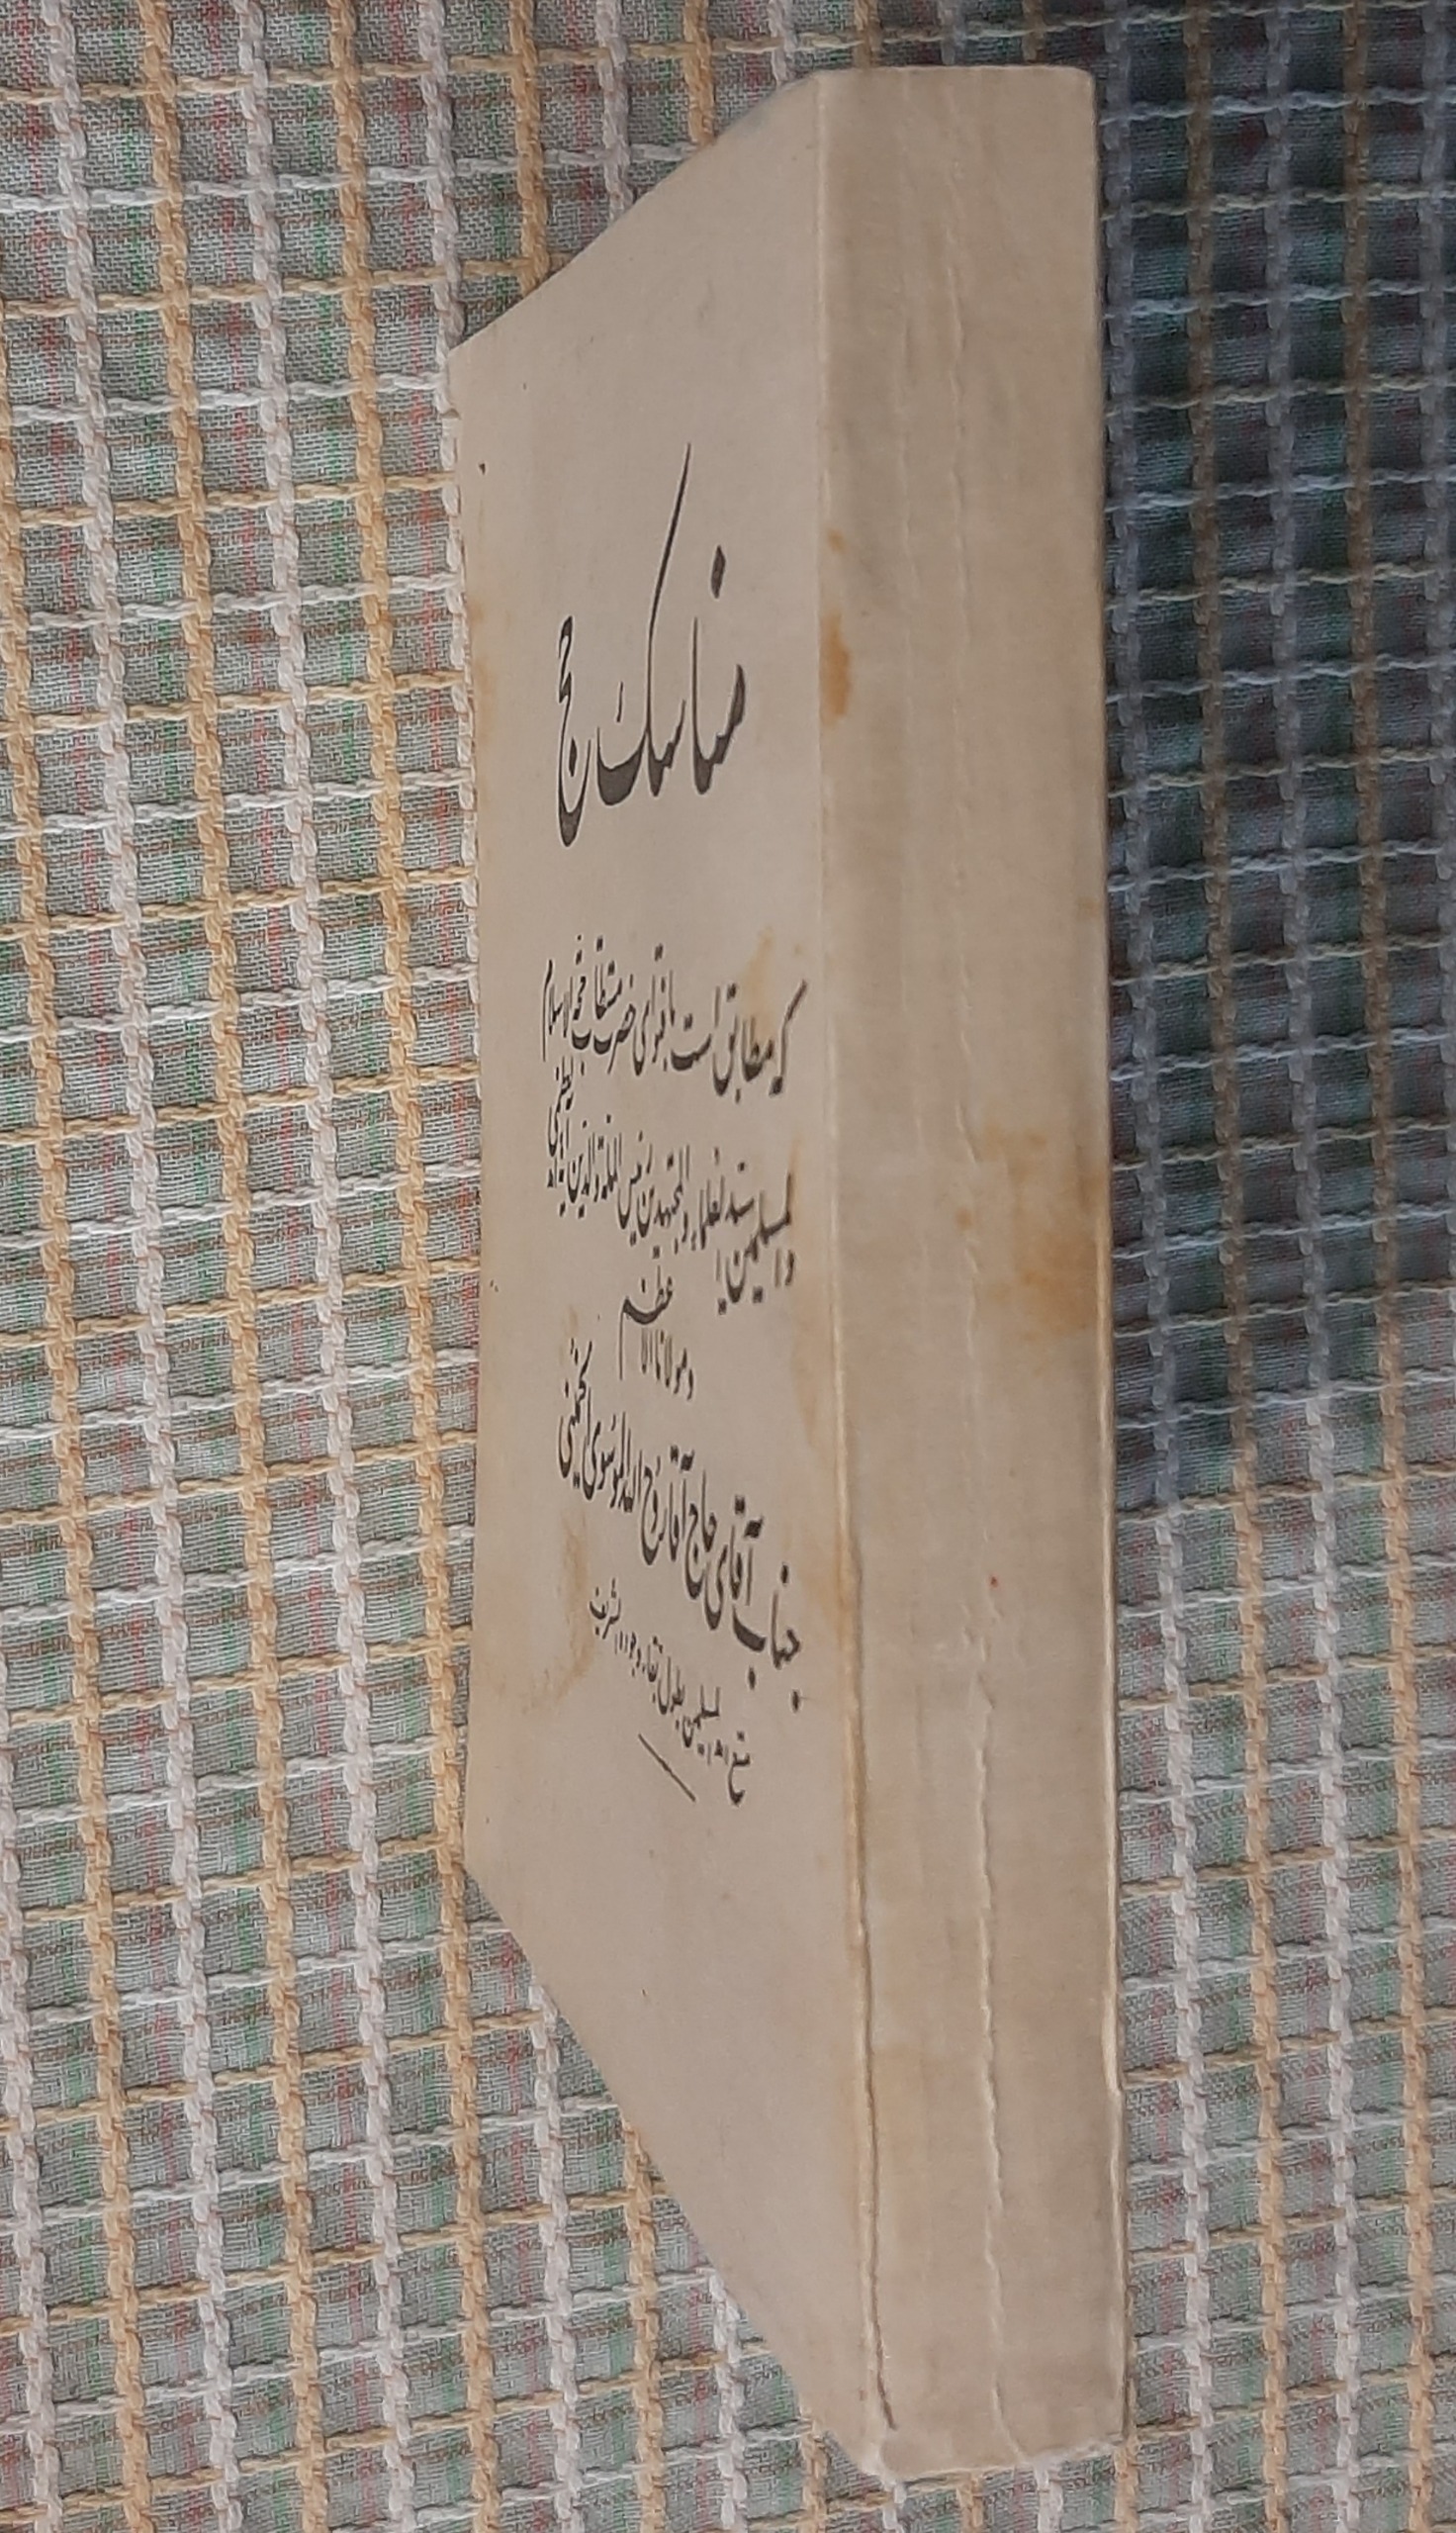 مناسک حج
که مطابق است با فتوای حضرت مستطاب حجة الاسلام
والمسلمین سید العلماء والمجتهدین رئیس الملة والدین آیة الله العظمی
و مولانا الاعظم
جناب آقای حاج آقا روح الله الموسوی الخمینی
متع الله المسلمین بطول بقاء وجوده الشریف